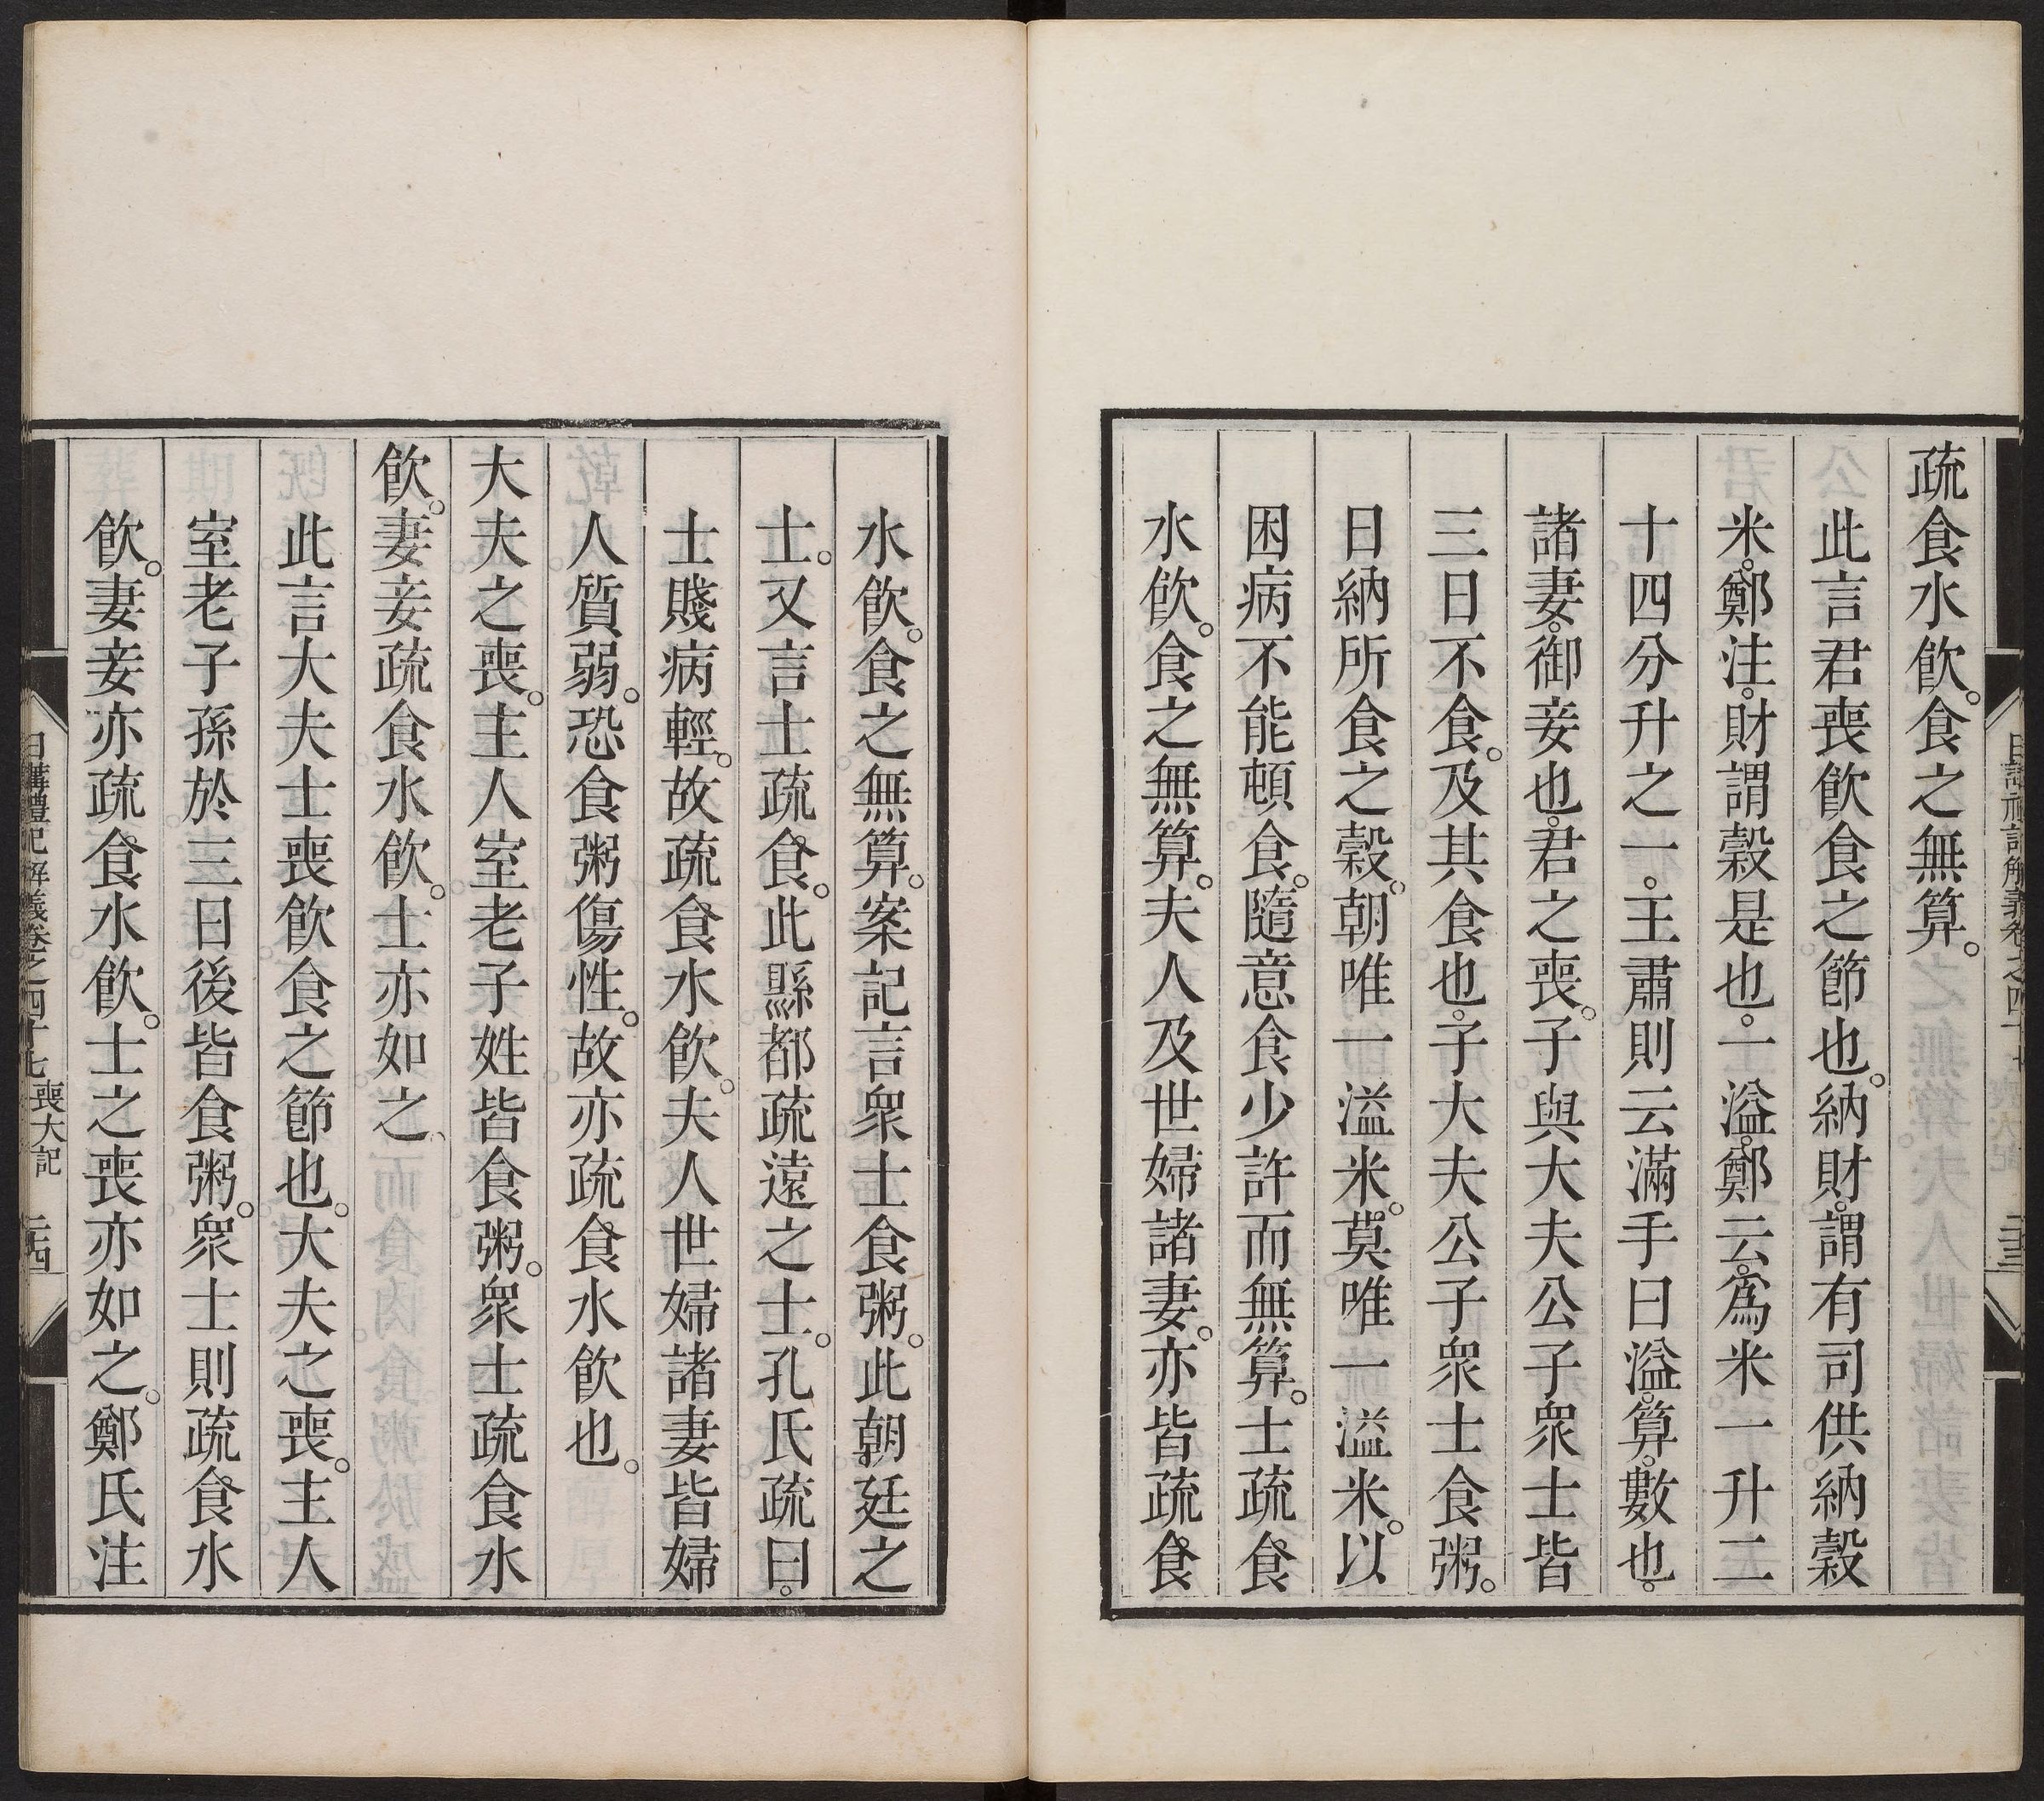 疏食水飲。食之無算。
此言君喪飲食之節也。納財。謂有司供納穀
米。鄭注。財謂穀是也。一溢。鄭云。為米一升二
十四分升之一。王肅則云滿手曰溢。算。數也。
諸妻。御妾也。君之喪。子與大夫公子衆士皆
三日不食。及其食也。子大夫公子衆士食粥。
日納所食之穀。朝唯一溢米。莫唯一溢米。以
困病不能頓食。隨意食少許而無算。士疏食
水飲。食之無算。夫人及世婦諸妻。亦皆疏食
水飲。食之無算。案記言衆士食粥。此朝廷之
士。又言士疏食。此縣都疏遠之士。孔氏疏曰。
士賤病輕。故疏食水飲。夫人世婦諸妻皆婦
人質弱。恐食粥傷性。故亦疏食水飲也。
大夫之喪。主人室老子姓皆食粥。衆士疏食水
飲。妻妾疏食水飲。士亦如之。
此言大夫士喪飲食之節也。大夫之喪。主人
室老子孫於三日後皆食粥。衆士則疏食水
飲。妻妾亦疏食水飲。士之喪亦如之。鄭氏注
日講禮記解義卷之四十七 喪大記 二十四